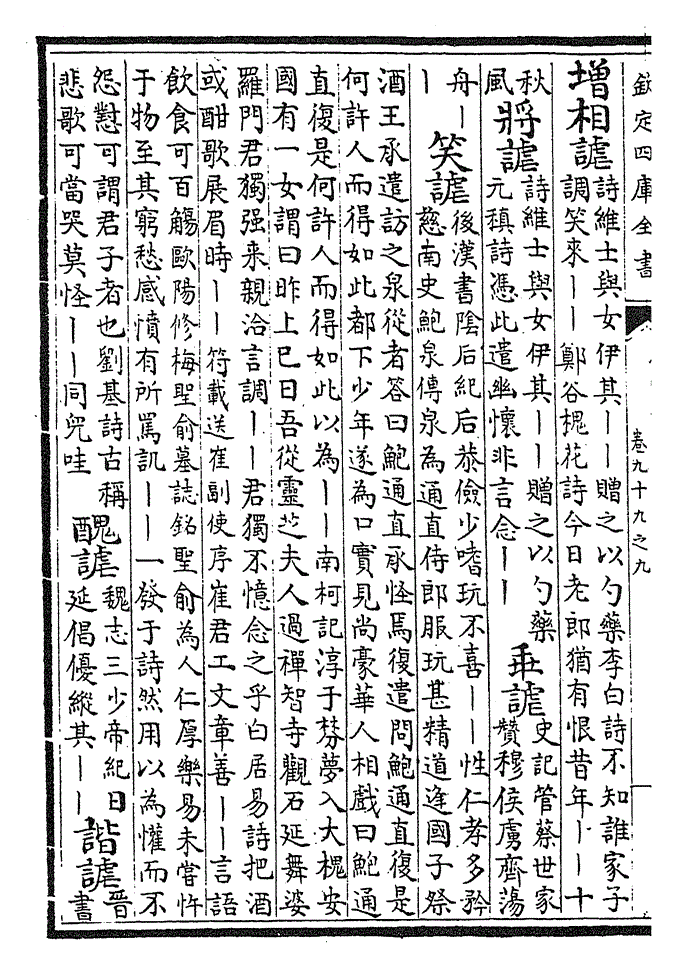 欽定四庫全書
卷九十九之九
增相謔
詩維士與女伊其丨丨贈之以勺藥李白詩不知誰家子
調笑來丨丨鄭谷槐花詩今日老郎猶有恨昔年丨丨十
秋
風
將謔
詩維士與女伊其丨丨贈之以勺藥
元稹詩憑此遣幽懷非言念丨丨
垂謔
史記管蔡世家
贊穆侯虜齊蕩
舟丨
丨
笑謔
後漢書陰后紀后恭儉少嗜玩不喜丨丨性仁孝多矜
慈南史鮑泉傳泉為通直侍郎服玩甚精道逢國子祭
酒王承遣訪之泉從者答曰鮑通直承怪焉復遣問鮑通直復是
何許人而得如此都下少年遂為口實見尚豪華人相戲曰鮑通
直復是何許人而得如此以為丨丨南柯記淳于棼夢入大槐安
國有一女謂曰昨上巳日吾從靈芝夫人過禪智寺觀石延舞婆
羅門君獨强来親洽言調丨丨君獨不憶念之乎白居易詩把酒
或酣歌展眉時丨丨符載送崔副使序崔君工文章善丨丨言語
飲食可百觴歐陽修梅聖俞墓誌銘聖俞為人仁厚樂易未嘗忤
于物至其窮愁感憤有所罵訊丨丨一發于詩然用以為懽而不
怨懟可謂君子者也劉基詩古稱
悲歌可當哭莫怪丨丨同兒哇
醜謔
魏志三少帝紀日
延倡優縱其丨丨
諧謔
晉
書